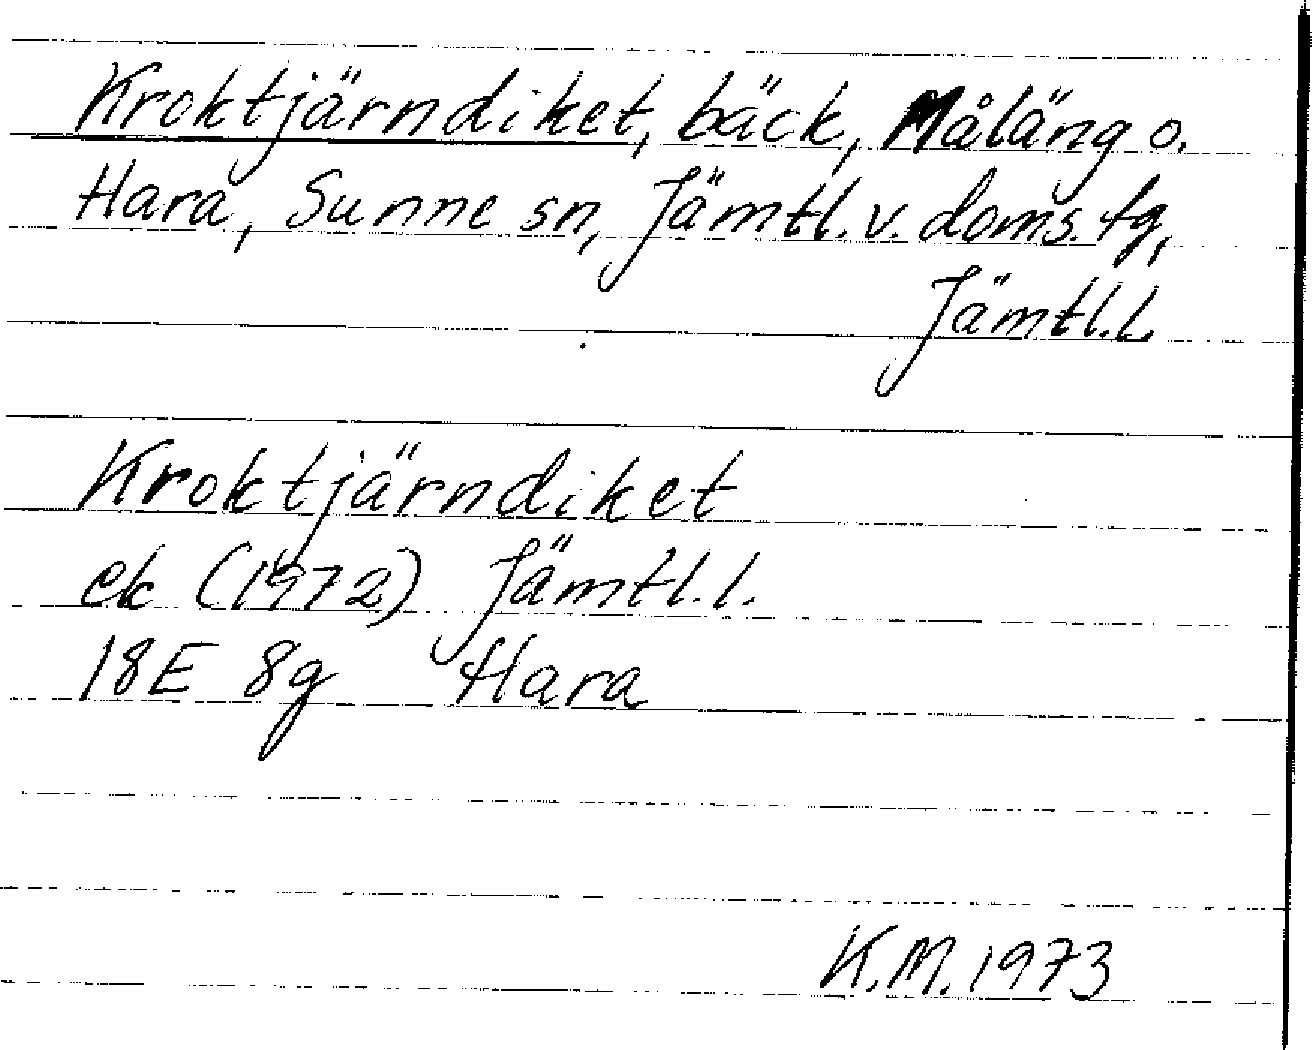 Kroktjärndiket, bäck, Måläng o.
Hara, Sunne sn, Jämtl. v. doms. tg,
Jämtl. L
Kroktjärndiket
ek (1972) Jämtl. l.
18E 8g Hara
K.M. 1973